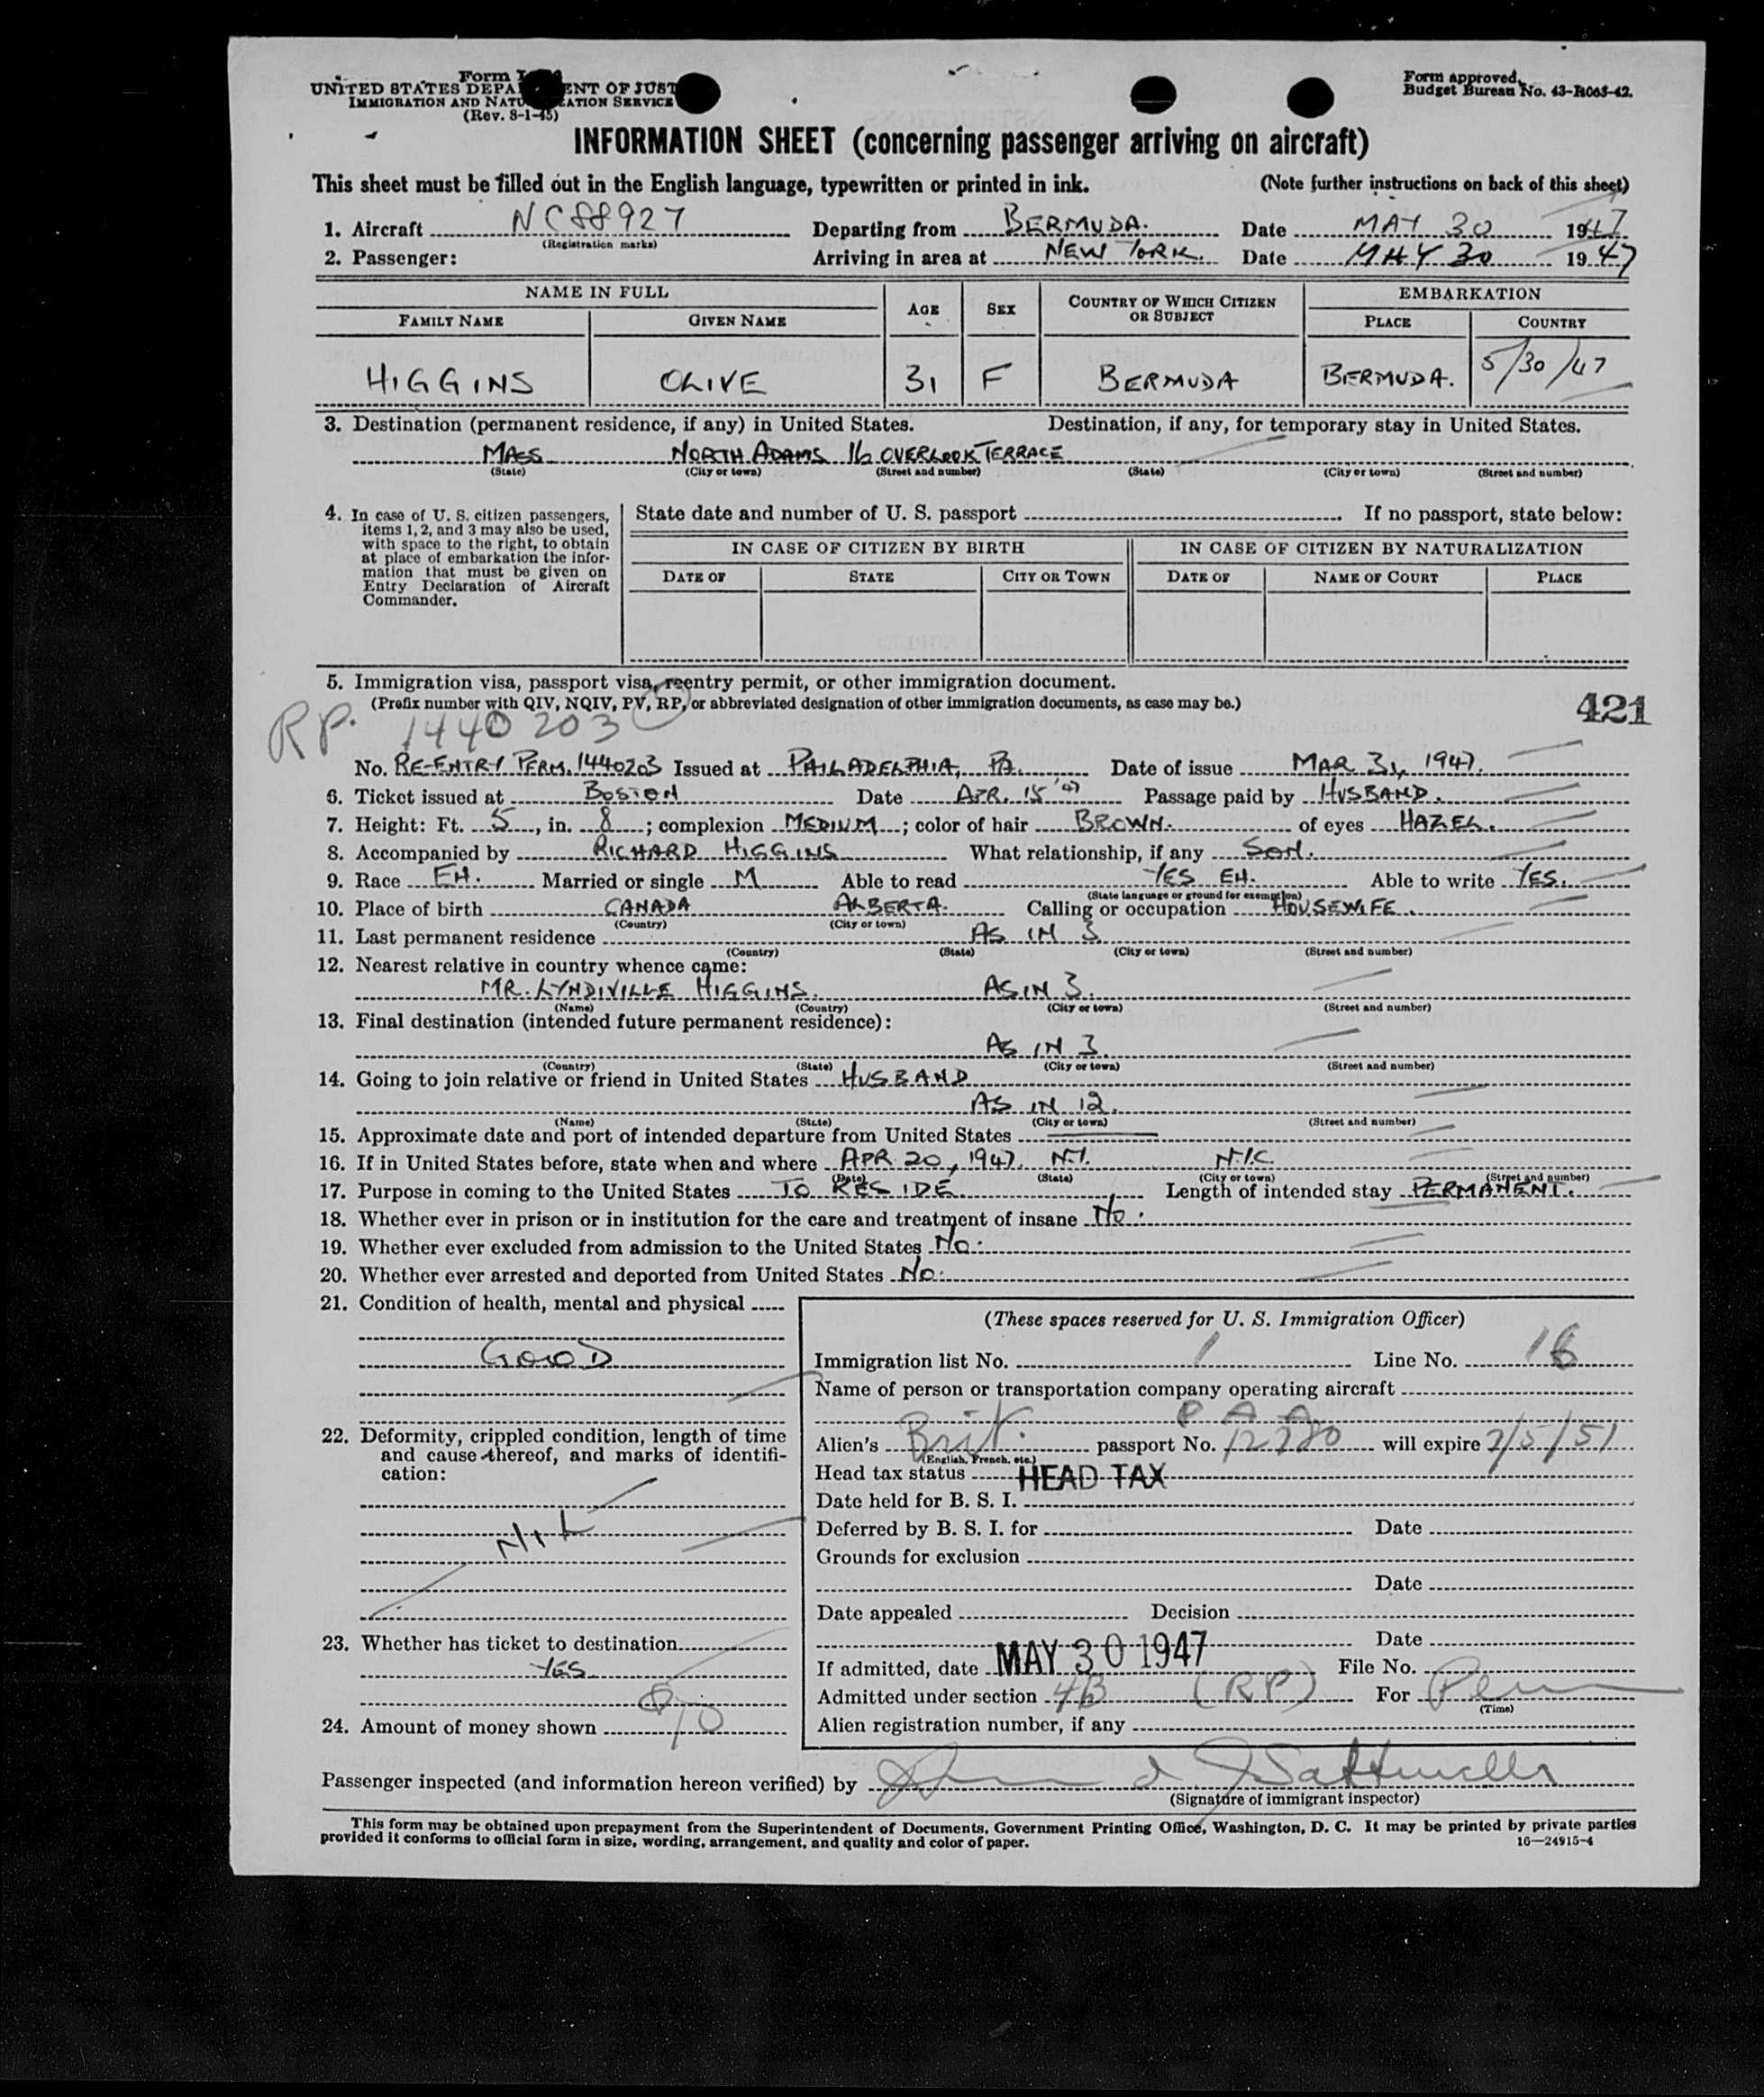 Form I
UNITED STATES DEPA ENT OF JUST
IMMIGRATION AND NATU ATION SERVICE
(Rev. 8-1-45)
Form approved.
Budget Bureau No. 43-R065-42.
INFORMATION SHEET (concerning passenger arriving on aircraft)
This sheet must be filled out in the English language, typewritten or printed in ink. (Note further instructions on back of this sheet)
1. Aircraft NC88927 Departing from BERMUDA. Date MAY 30 1947
(Registration marks)
2. Passenger: Arriving in area at NEW YORK. Date MAY 30 1947
NAME IN FULL AGE SEX COUNTRY OF WHICH CITIZEN OR SUBJECT EMBARKATION
FAMILY NAME GIVEN NAME PLACE COUNTRY
HIGGINS OLIVE 31 F BERMUDA BERMUDA. 5/30/47
3. Destination (permanent residence, if any) in United States. Destination, if any, for temporary stay in United States.
MASS NORTH ADAMS 16 OVERLOOK TERRACE
(State) (City or town) (Street and number) (State) (City or town) (Street and number)
4. In case of U. S. citizen passengers, items 1, 2, and 3 may also be used, with space to the right, to obtain at place of embarkation the information that must be given on Entry Declaration of Aircraft Commander.
State date and number of U. S. passport If no passport, state below:
IN CASE OF CITIZEN BY BIRTH IN CASE OF CITIZEN BY NATURALIZATION
DATE OF STATE CITY OR TOWN DATE OF NAME OF COURT PLACE
5. Immigration visa, passport visa, reentry permit, or other immigration document.
(Prefix number with QIV, NQIV, PV, RP, or abbreviated designation of other immigration documents, as case may be.)
421
RP. 1440203
No. RE-ENTRY PERM. 1440203 Issued at PHILADELPHIA, PA. Date of issue MAR 31, 1947.
6. Ticket issued at BOSTON Date APR. 15 '47 Passage paid by HUSBAND.
7. Height: Ft. 5, in. 8; complexion MEDIUM; color of hair BROWN. of eyes HAZEL.
8. Accompanied by RICHARD HIGGINS What relationship, if any SON.
9. Race EH. Married or single M Able to read YES EH. Able to write YES.
(State language or ground for exemption)
10. Place of birth CANADA ALBERTA. Calling or occupation HOUSEWIFE.
(Country) (City or town)
11. Last permanent residence AS IN 3
(Country) (State) (City or town) (Street and number)
12. Nearest relative in country whence came:
MR. LYNDIVILLE HIGGINS. AS IN 3.
(Name) (Country) (City or town) (Street and number)
13. Final destination (intended future permanent residence):
AS IN 3.
(Country) (State) (City or town) (Street and number)
14. Going to join relative or friend in United States HUSBAND
AS IN 12.
(Name) (State) (City or town) (Street and number)
15. Approximate date and port of intended departure from United States
16. If in United States before, state when and where APR 20, 1947. N.Y. N.Y.C.
(Date) (State) (City or town) (Street and number)
17. Purpose in coming to the United States TO RESIDE Length of intended stay PERMANENT.
18. Whether ever in prison or in institution for the care and treatment of insane No.
19. Whether ever excluded from admission to the United States No.
20. Whether ever arrested and deported from United States No.
21. Condition of health, mental and physical
GOOD
22. Deformity, crippled condition, length of time and cause thereof, and marks of identification:
NIL
23. Whether has ticket to destination
YES
24. Amount of money shown
(These spaces reserved for U. S. Immigration Officer)
Immigration list No. 1 Line No. 16
Name of person or transportation company operating aircraft
P A A
Alien's Brit. passport No. 12780 will expire 2/5/51
(English, French, etc.)
Head tax status HEAD TAX
Date held for B. S. I.
Deferred by B. S. I. for Date
Grounds for exclusion
Date
Date appealed Decision
Date
If admitted, date MAY 30 1947 File No.
Admitted under section 4B (RP) For Perm
(Time)
Alien registration number, if any
Passenger inspected (and information hereon verified) by
(Signature of immigrant inspector)
This form may be obtained upon prepayment from the Superintendent of Documents, Government Printing Office, Washington, D. C. It may be printed by private parties
provided it conforms to official form in size, wording, arrangement, and quality and color of paper. 16—24915-4